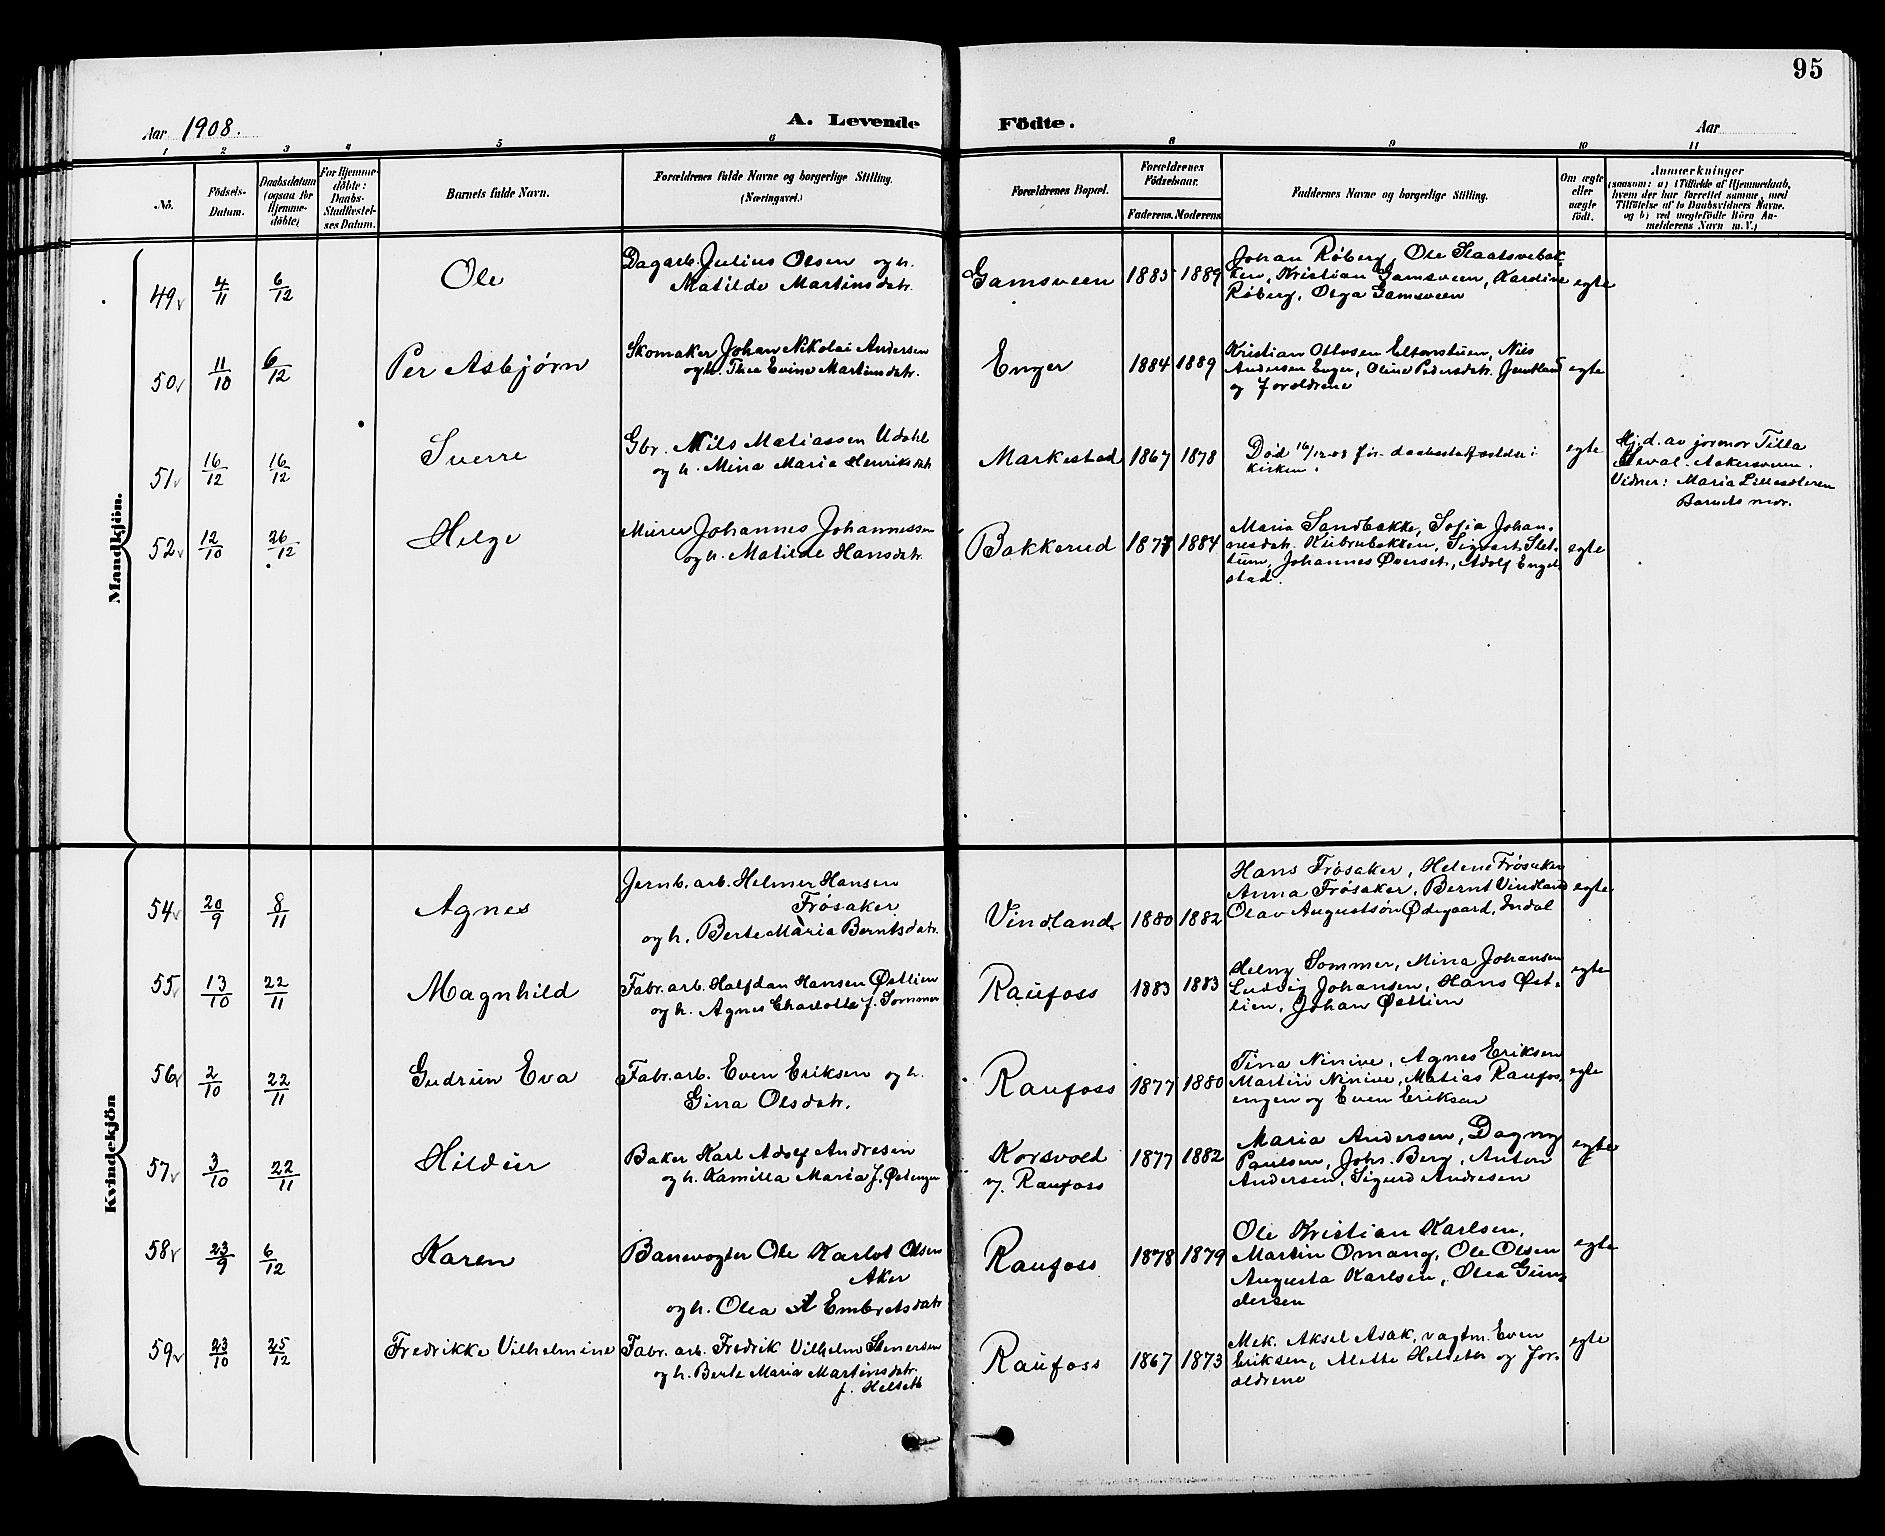 95
Aar 1908.
A. Levende Födte.
Aar
1 2 3 4 5 6 8 9 10 11
No.
Födsels-
Datum.
Daabsdatum
(ogsaa for
Hjemme-
döbte)
For Hjemme-
döbte:
Daabs-
Stadfæstel-
ses Datum.
Barnets fulde Navn.
Forældrenes fulde Navne og borgerlige Stilling.
(Næringsvei.)
Forældrenes Bopæl.
Forældrenes
Födselsaar.
Faderens. Moderens
Faddernes Navne og borgerlige Stilling.
Om ægte
eller
uægte
födt.
Anmærkninger
(saasom: a) i Tilfælde af Hjemmedaab,
hvem der har forrettet samme, med
Tilföielse af to Daabsvidners Navne.
og b) ved uægtefödte Börn An-
melderens Navn m. V.)
Mandkjön.
49 4/11 6/12 Ole
Dagarb. Julius Olsen og h.
Matilde Martinsdatr.
Gamsveen 1885 1889
Johan Røberg, Ole Staatsvebak-
ken, Kristian Gamsveen, Kardine
Røberg, Olga Gamsveen
egte
50 11/10 6/12 Per Asbjørn
Skomaker Johan Nikolai Andersen
og h. Thea Evine Martinsdatr.
Enger 1884 1889
Kristian Ottosen Eltonstuen, Nils
Andersen Enger, Oline Pedersdatr.
og Forældrene
egte
51 16/12 16/12 Sverre
Gbr. Nils Matiassen Udahl
og h. Mina Maria Henriksdatr
Markestad 1867 1878
Død 16/12 08 før daabsstadfæstelse i
kirken.
egte
Hj. d. av jormor Tilla
Heval. Aakersveen.
Vidner: Maria
Barnets mor.
52 12/10 26/12 Helge
Murer Johannes Johannessen
og h. Matilde Hansdatr.
Bakkerud 1877 1884
Maria Sandbakke, Sofia Johan-
nesdatr. Kubrubakken, Sigvart Slet-
tum, Johannes Øverset, Adolf Engel-
stad.
egte
Kvindekjön
54 20/9 8/11 Agnes
Jernb. arb. Helmer Hansen
Frösaker
og h. Berte Maria Berntsdatr.
Vindland 1880 1882
Hans Frösaker, Helene Frösaker
Anna Frösaker, Bernt Vindland
Olav Augustsön Ødegaard, Indal
egte
55 13/10 22/11 Magnhild
Fabr. arb. Halfdan Hansen Østlien
og h. Agnes Charlotte f. Sommer
Raufoss 1883 1883
Helny Sommer, Mina Johansen
Ludvig Johansen, Hans Øst-
lien, Johan Østlien
egte
56 2/10 22/11 Gudrun Eva
Fabr. arb. Even Eriksen og h.
Gina Olsdatr.
Raufoss 1877 1880
Tina Ninive, Agnes Eriksen
Martin Ninive, Matias Raufos-
engen og Even Eriksen
egte
57 3/10 22/11 Hildur
Baker Karl Adolf Andresen
og h. Kamilla Maria f. Østenger
Korsvold
v/. Raufoss
1877 1882
Maria Andersen, Dagny
Paulsen, Johs. Berg, Anton
Andersen, Sigurd Andresen
egte
58 23/9 6/12 Karen
Banevogter Ole Karlot Olsen
Aker
og h. Olea Embretsdatr
Raufoss 1878 1879
Ole Kristian Karlsen,
Martin Omang, Ole Olsen
Augusta Karlsen, Olea Gun-
dersen
egte
59 23/10 25/12 Fredrikke Vilhelmine
Fabr. arb. Fredrik Vilhelm Stenersen
og h. Berte Maria Martinsdatr.
f. Helseth
Raufoss 1867 1873
Mek. Aksel Asak, vagtm. Even
Eriksen, Mette Helseth og For-
ældrene
egte